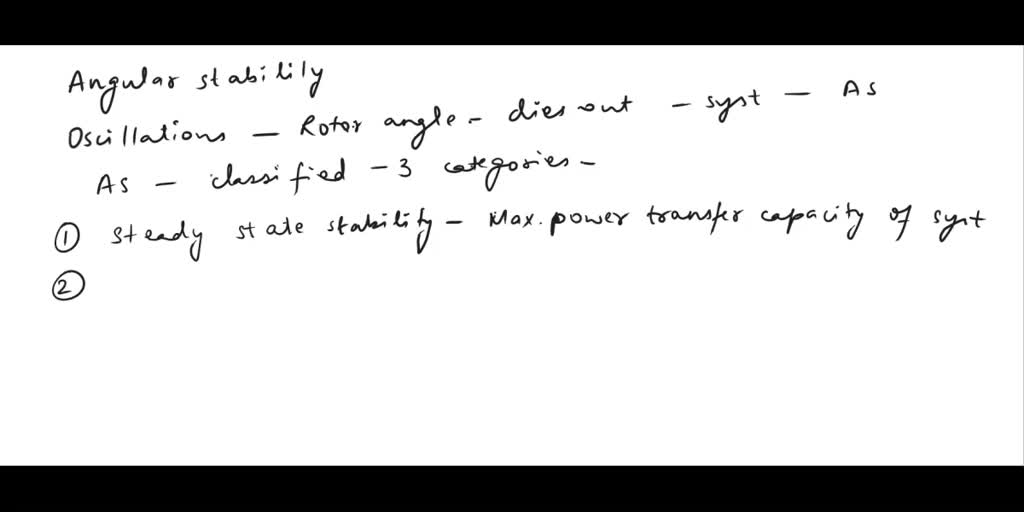 Angular stability
Oscillations — Rotor angle - dies out - syst — As
As — classified - 3 categories -
① steady state stability - Max. power transfer capacity of syst
②